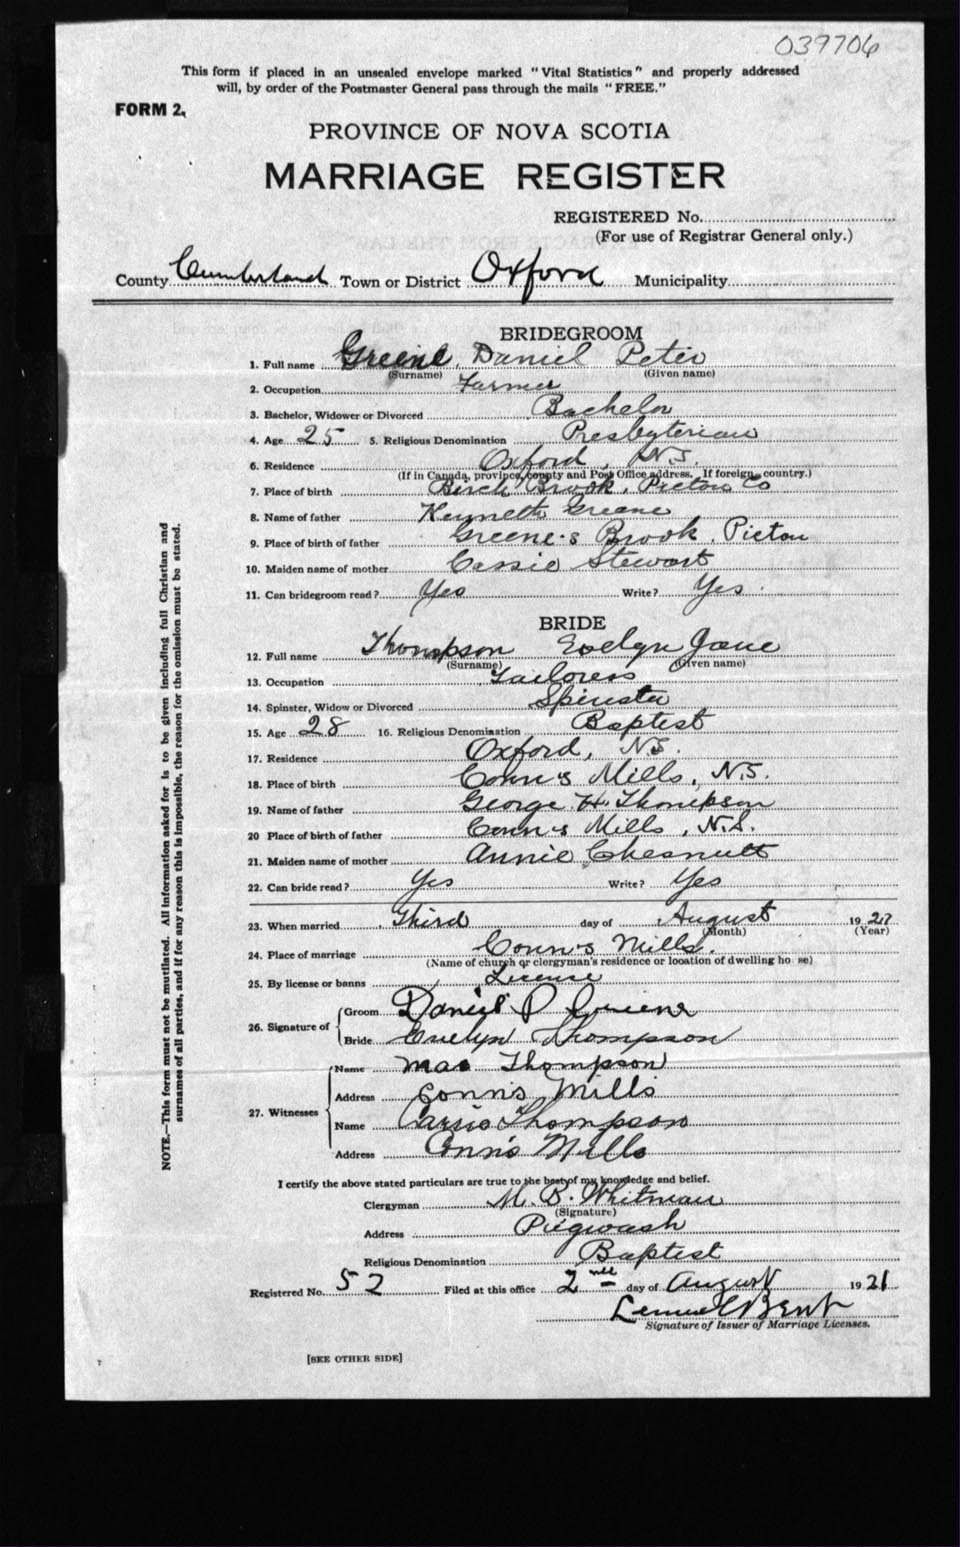 039706
This form if placed in an unsealed envelope marked "Vital Statistics" and properly addressed
will, by order of the Postmaster General pass through the mails "FREE."
FORM 2.
PROVINCE OF NOVA SCOTIA
MARRIAGE REGISTER
REGISTERED No.
(For use of Registrar General only.)
County Cumberland Town or District Oxford Municipality
BRIDEGROOM
1. Full name Greene, Daniel Peter
(Surname) (Given name)
2. Occupation Farmer
3. Bachelor, Widower or Divorced Bachelor
4. Age 25 5. Religious Denomination Presbyterian
6. Residence Oxford, N.S.
(If in Canada, province, county and Post Office address. If foreign, country.)
7. Place of birth Birch Brook, Pictou Co
8. Name of father Kenneth Greene
9. Place of birth of father Greene's Brook, Pictou
10. Maiden name of mother Cassie Stewart
11. Can bridegroom read? Yes Write? Yes
BRIDE
12. Full name Thompson Evelyn Jane
(Surname) (Given name)
13. Occupation Tailoress
14. Spinster, Widow or Divorced Spinster
15. Age 28 16. Religious Denomination Baptist
17. Residence Oxford, N.S.
18. Place of birth Conn's Mills, N.S.
19. Name of father George H. Thompson
20 Place of birth of father Conn's Mills, N.S.
21. Maiden name of mother Annie Chesnutt
22. Can bride read? Yes Write? Yes
23. When married Third day of August 19
(Month) (Year)
24. Place of marriage Conn's Mills.
(Name of church or clergyman's residence or location of dwelling ho se)
25. By license or banns License
26. Signature of Groom Daniel P Greene
Bride Evelyn Thompson
27. Witnesses Name Mae Thompson
Address Conn's Mills
Name Thompson
Address Conn's Mills
I certify the above stated particulars are true to the best of my knowledge and belief.
Clergyman M. B. Whitman
(Signature)
Address Pugwash
Religious Denomination Baptist
Registered No. 52 Filed at this office 2nd day of August 1921
Lemuel C Bent
Signature of Issuer of Marriage Licenses.
[SEE OTHER SIDE]
NOTE.—This form must not be mutilated. All information asked for is to be given including full Christian and
surnames of all parties, and if for any reason this is impossible, the reason for the omission must be stated.